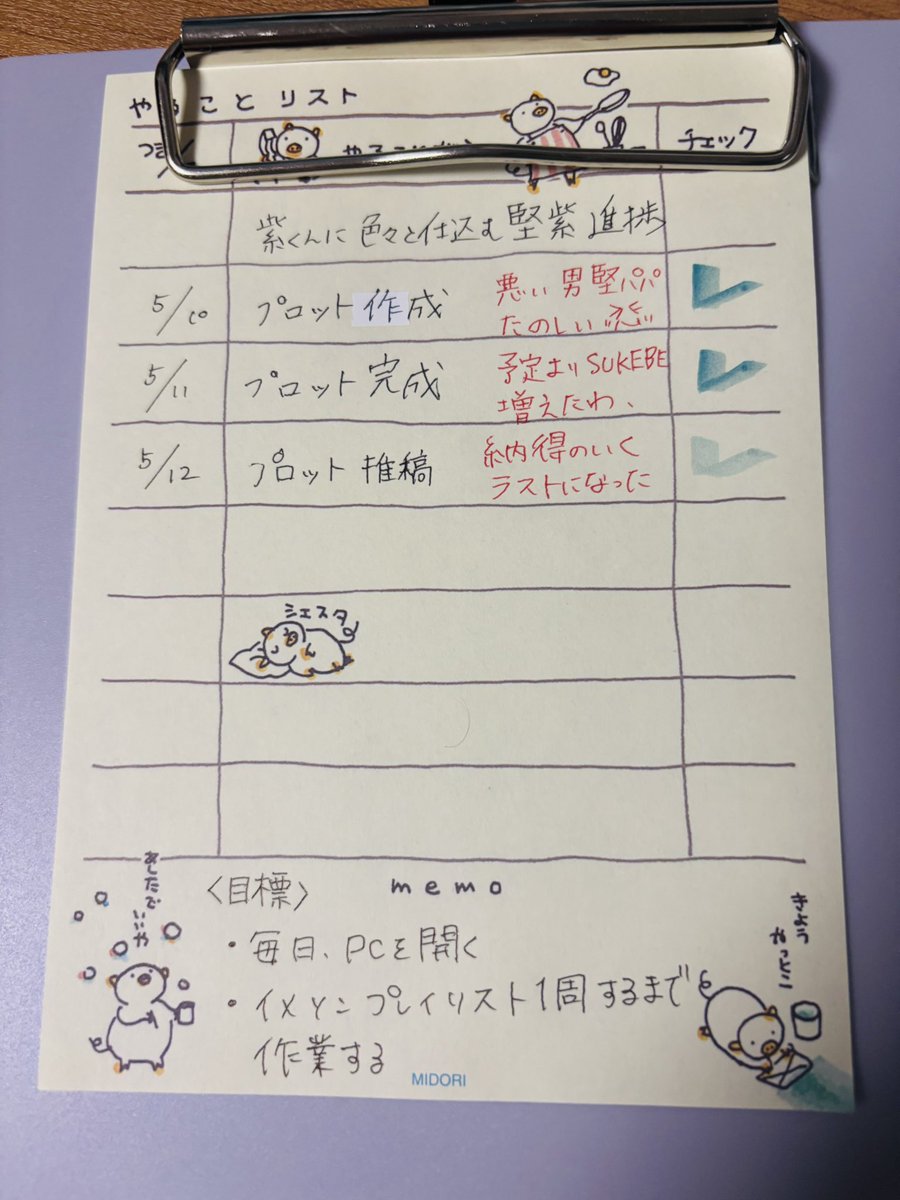 やることリスト
チェック
紫くんに色々と仕込む堅紫進捗
5/10 プロット作成 悪い男堅パパ
たのしい
5/11 プロット完成 予定よりSUKEBE
増えたわ、
5/12 プロット推稿 納得のいく
ラストになった
シエスタ
あしたで
いいや
memo
〈目標〉
・毎日、PCを開く
・イメソンプレイリスト1周するまで
作業する
きょう
やっとこ
MIDORI